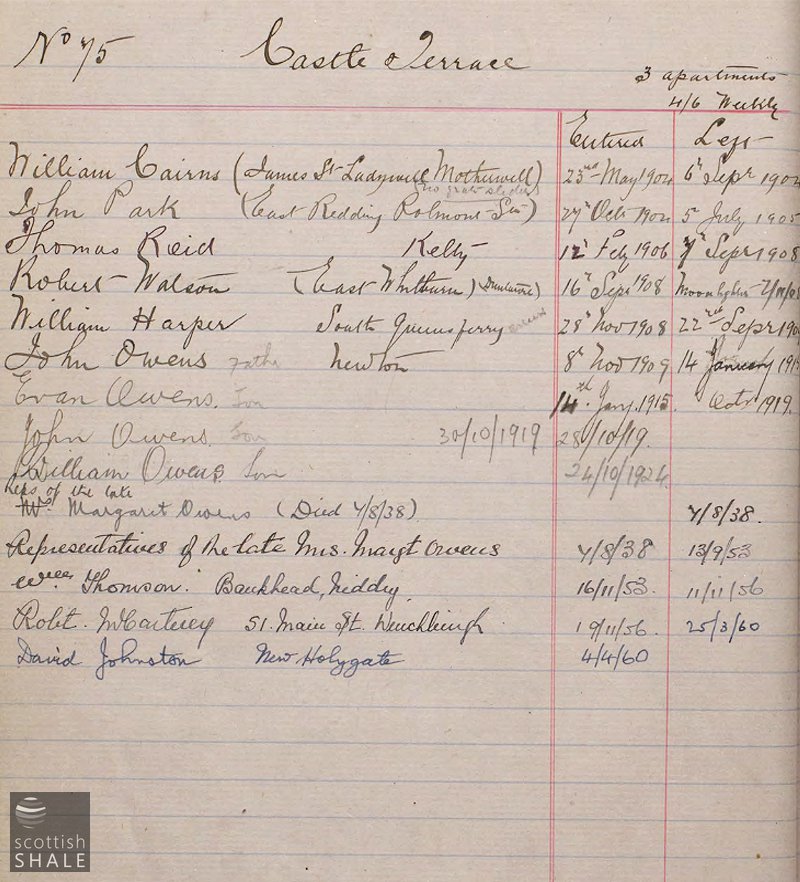 No 75 Castle Terrace
3 apartments
4/6 Weekly
Entered Left
William Cairns (James St Ladywell Motherwell) 23rd May 1904 6th Sepr 1904
John Park (East Redding Polmont Stn) 27th Octr 1904 5th July 1905
Thomas Reid Kelty 12th Feby 1906 7th Sepr 1908
Robert Watson (East Whitburn) 16th Sepr 1908 Moonlight
William Harper South Queensferry 28th Nov 1908 22nd Sepr
John Owens Newton 8th Nov 1909 14 January
Evan Owens. Son 14th Jany. 1915. Octr 1919.
John Owens. Son 30/10/1919 28/10/19.
William Owens Son 24/10/1924.
Reps of the late
Mrs. Margaret Owens (Died 7/8/38) 7/8/38.
Representatives of the late Mrs. Margt Owens 7/8/38 13/9/53
Thomson. Bankhead, Niddry. 16/11/53. 11/11/56
Robt. McCartney 51. Main St. Winchburgh 19/11/56. 25/3/60
David Johnston New Holygate 4/4/60
scottish
SHALE